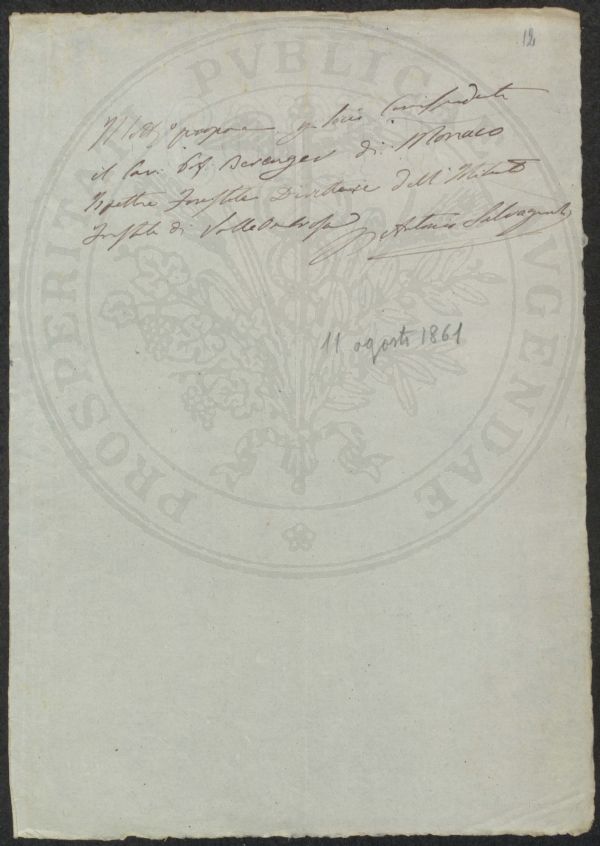 12
Il Sott.º propone per Socio Corrispondente
il Cav. Prof. Berenger di Monaco
Ispettore Forestale Direttore dell'Istituto
Forestale di Vallombrosa
Antonio Salvagnoli
11 agosto 1861
PROSPERITATI PVBLICAE AVGENDAE